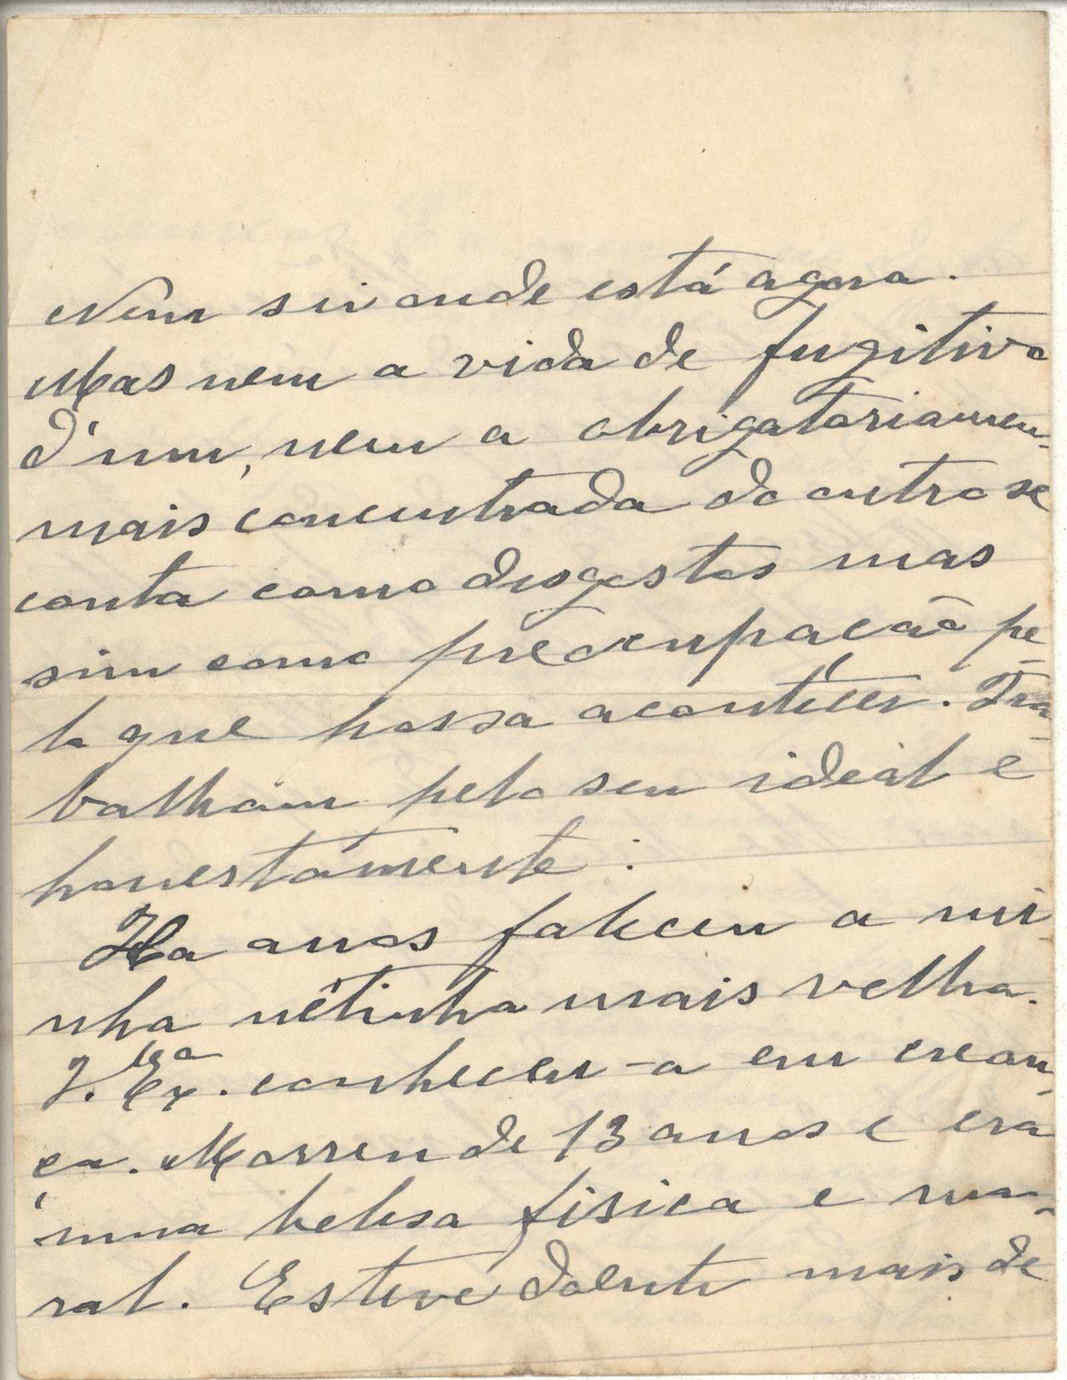 Nem sei onde está agora.
Mas nem a vida de fugitivo
d'um, nem a obrigatoriamen-
mais concentrada do outro se
conta como disgostos mas
sim como preocupação pe-
lo que possa acontecer. Tra-
balham pelo seu ideal e
honestamente.
Ha anos faleceu a mi
nha nétinha mais velha.
V. Exª. conheceu-a em crean-
ça. Morreu de 13 anos e era
uma belesa fisica e mo-
ral. Esteve doente mais de